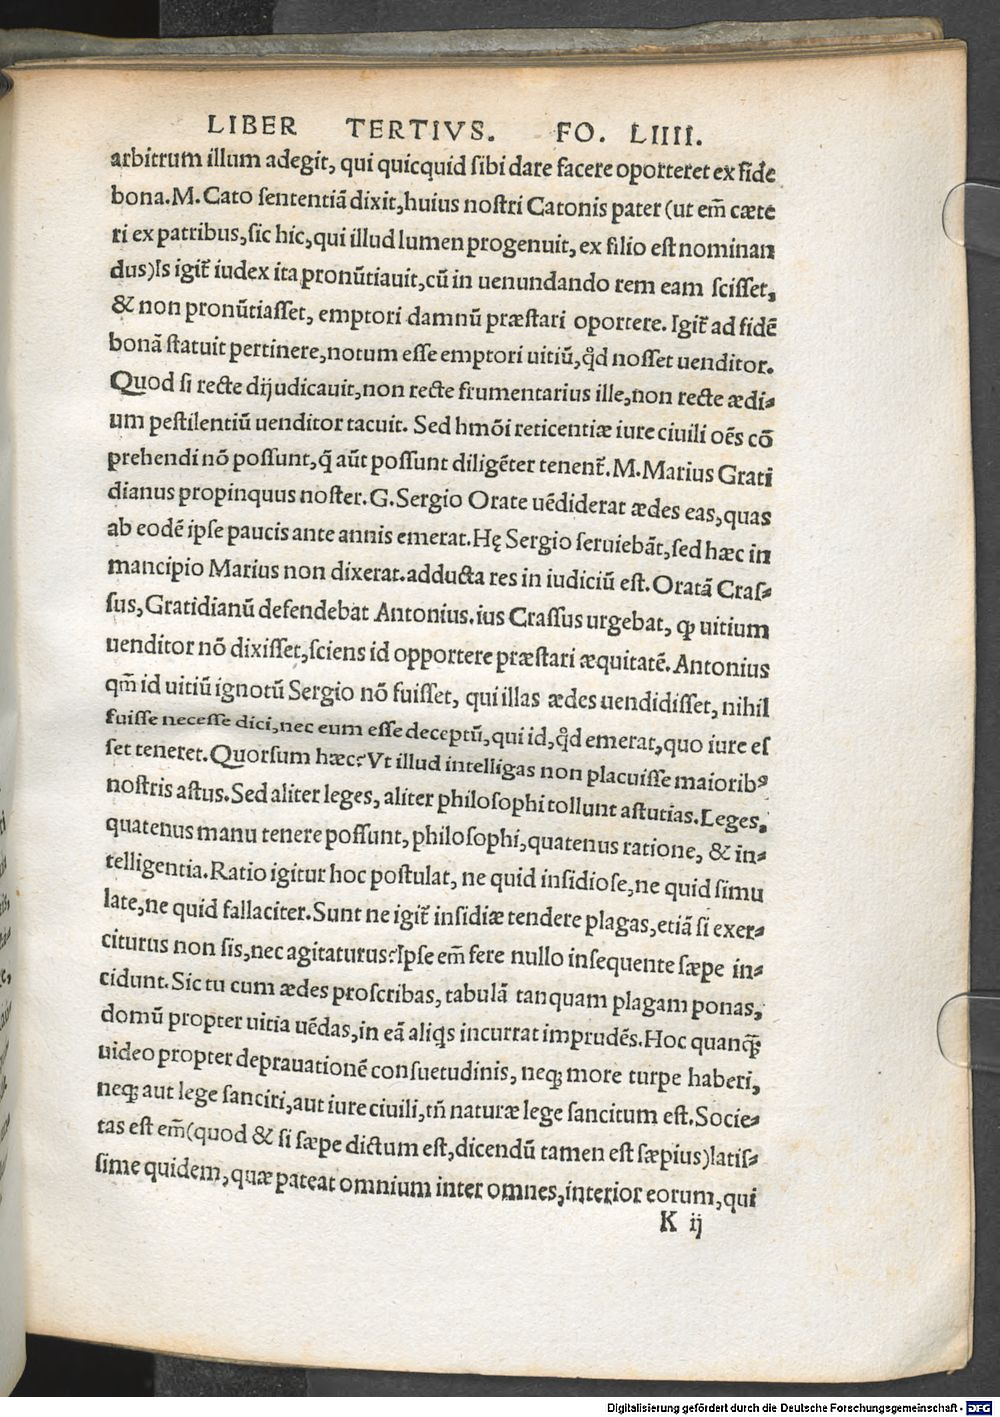 LIBER TERTIVS. FO. LIIII.
arbitrum illum adegit, qui quicquid ſibi dare facere oporteret ex fide
bona. M. Cato ſententiā dixit, huius noſtri Catonis pater (ut em̄ cæte
ri ex patribus, ſic hic, qui illud lumen progenuit, ex filio eſt nominan
dus) Is igit᷑ iudex ita pronūtiauit, cū in uenundando rem eam ſciſſet,
& non pronūtiaſſet, emptori damnū præſtari oportere. Igit᷑ ad fidē
bonā ſtatuit pertinere, notum eſſe emptori uitiū, qd̛ noſſet uenditor.
Quod ſi recte dijudicauit, non recte frumentarius ille, non recte ædi⸗
um peſtilentiū uenditor tacuit. Sed hmōi reticentiæ iure ciuili oēs cō
prehendi nō poſſunt, q̄ aūt poſſunt diligēter tenent᷑. M. Marius Grati
dianus propinquus noſter. G. Sergio Orate uēdiderat ædes eas, quas
ab eodē ipſe paucis ante annis emerat. Hę Sergio ſeruiebāt, ſed hæc in
mancipio Marius non dixerat. adducta res in iudiciū eſt. Oratā Craſ⸗
ſus, Gratidianū defendebat Antonius. ius Craſſus urgebat, ꝙ uitium
uenditor nō dixiſſet, ſciens id opportere præſtari æquitatē. Antonius
qm̄ id uitiū ignotū Sergio nō fuiſſet, qui illas ædes uendidiſſet, nihil
fuiſſe neceſſe dici, nec eum eſſe deceptū, qui id, qd̛ emerat, quo iure eſ
ſet teneret. Quorſum hæc? Vt illud intelligas non placuiſſe maiorib⁹
noſtris aſtus. Sed aliter leges, aliter philoſophi tollunt aſtutias. Leges,
quatenus manu tenere poſſunt, philoſophi, quatenus ratione, & in⸗
telligentia. Ratio igitur hoc poſtulat, ne quid inſidioſe, ne quid ſimu
late, ne quid fallaciter. Sunt ne igit᷑ inſidiæ tendere plagas, etiā ſi exer⸗
citurus non ſis, nec agitaturus? Ipſe em̄ fere nullo inſequente ſæpe in⸗
cidunt. Sic tu cum ædes proſcribas, tabulā tanquam plagam ponas,
domū propter uitia uēdas, in eā aliq̇s incurrat imprudēs. Hoc quanq̄ꝫ
uideo propter deprauationē conſuetudinis, neqꝫ more turpe haberi,
neqꝫ aut lege ſanciri, aut iure ciuili, tn̄ naturæ lege ſancitum eſt. Socie⸗
tas eſt em̄ (quod & ſi ſæpe dictum eſt, dicendū tamen eſt ſæpius) latiſ⸗
ſime quidem, quæ pateat omnium inter omnes, interior eorum, qui
K ij
Digitalisierung gefördert durch die Deutsche Forschungsgemeinschaft - DFG